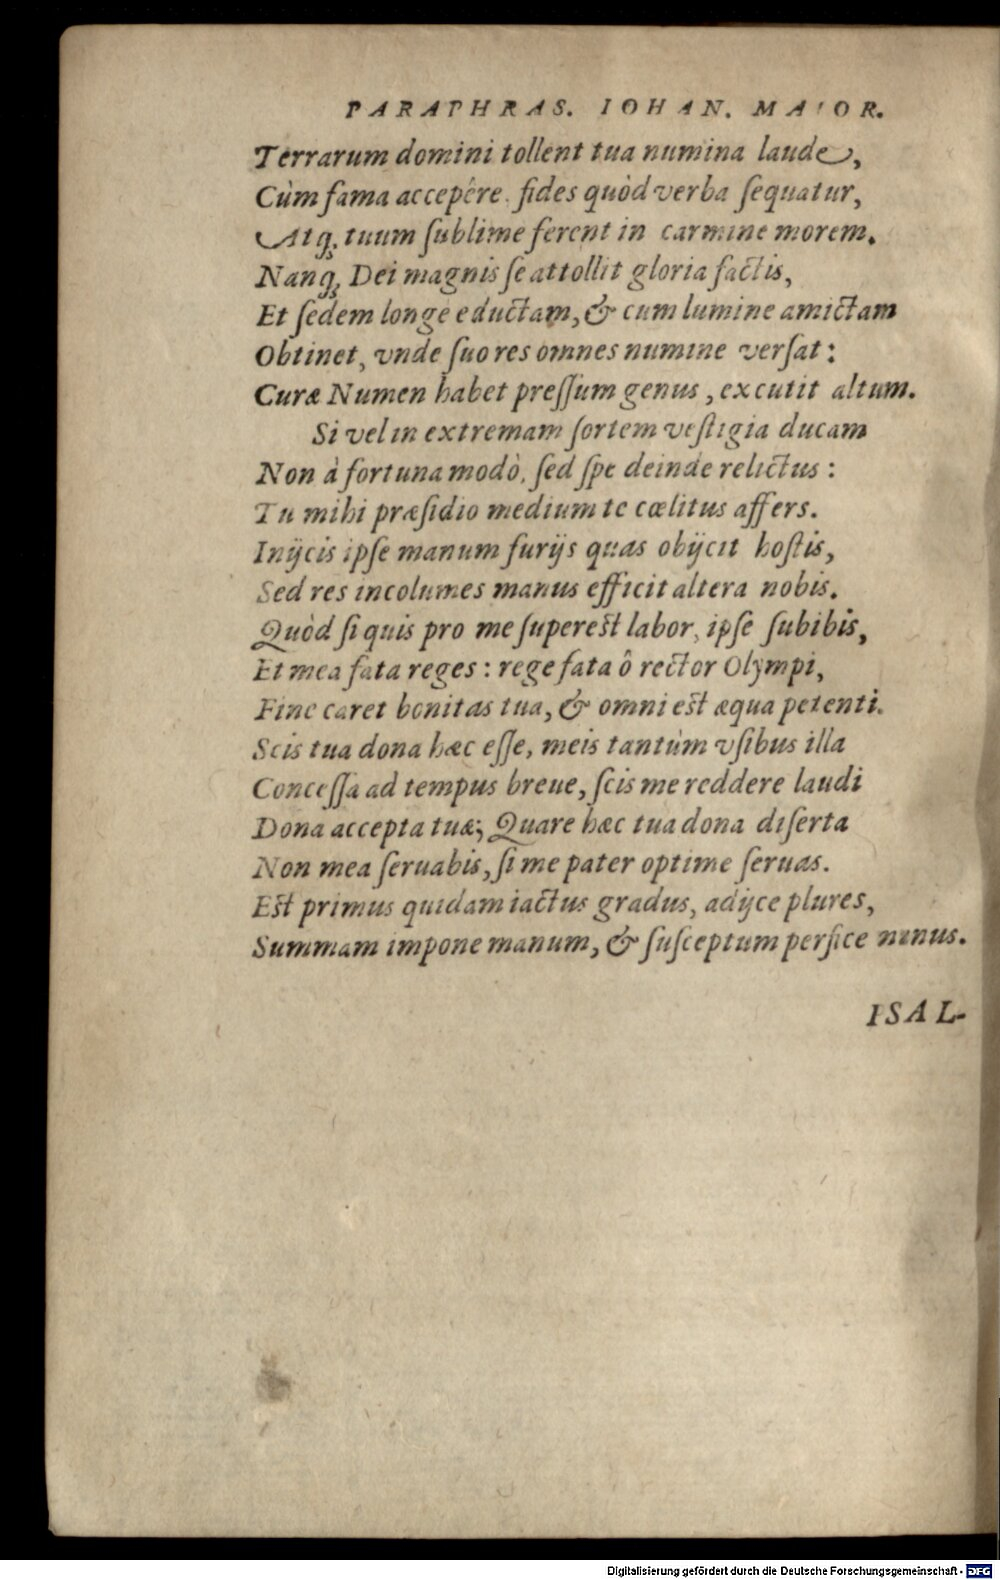 PARAPHRAS. IOHAN. MAIOR.
Terrarum domini tollent tua numina laude,
Cùm fama accepêre. fides quòd verba ſequatur,
Atq; tuum ſublime ferent in carmine morem.
Nanq; Dei magnis ſe attollit gloria factis,
Et ſedem longe eductam, & cum lumine amictam
Obtinet, vnde ſuo res omnes numine verſat:
Curæ Numen habet preſſum genus, excutit altum.
Si vel in extremam ſortem veſtigia ducam
Non à fortuna modò, ſed ſpe deinde relictus:
Tu mihi præſidio medium te cœlitus affers.
Inijcis ipſe manum furijs quas obijcit hoſtis,
Sed res incolumes manus efficit altera nobis.
Quòd ſi quis pro me ſupereſt labor, ipſe ſubibis,
Et mea fata reges: rege fata ô rector Olympi,
Fine caret bonitas tua, & omni eſt æqua petenti.
Scis tua dona hæc eſſe, meis tantùm vſibus illa
Conceſſa ad tempus breue, ſcis me reddere laudi
Dona accepta tuæ; Quare hæc tua dona diſerta
Non mea ſeruabis, ſi me pater optime ſeruas.
Eſt primus quidam iactus gradus, adijce plures,
Summam impone manum, & ſuſceptum perfice munus.
PSAL-
Digitalisierung gefördert durch die Deutsche Forschungsgemeinschaft - DFG